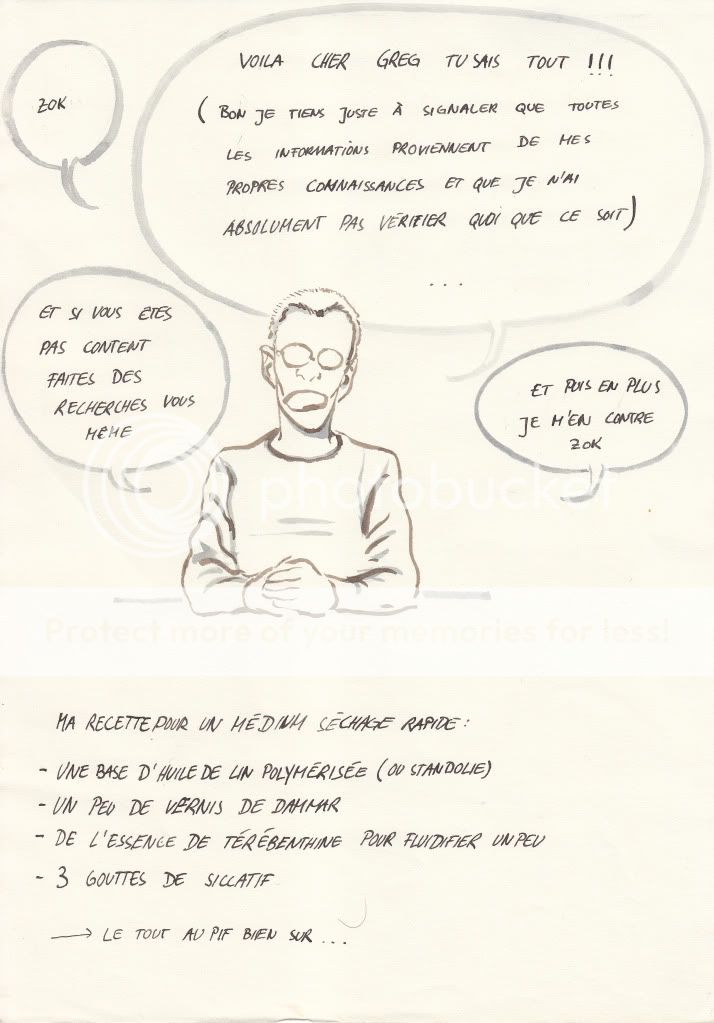 ZOK
VOILA CHER GREG TU SAIS TOUT !!!
( BON JE TIENS JUSTE À SIGNALER QUE TOUTES
LES INFORMATIONS PROVIENNENT DE MES
PROPRES CONNAISSANCES ET QUE JE N'AI
ABSOLUMENT PAS VÉRIFIER QUOI QUE CE SOIT)
...
ET SI VOUS ETES
PAS CONTENT
FAITES DES
RECHERCHES VOUS
MÊME
ET PUIS EN PLUS
JE M'EN CONTRE
ZOK
photobucket
Protect more of your memories for less!
MA RECETTE POUR UN MÉDIUM SÉCHAGE RAPIDE :
- UNE BASE D'HUILE DE LIN POLYMÉRISÉE (OU STANDOLIE)
- UN PEU DE VERNIS DE DAMMAR
- DE L'ESSENCE DE TÉRÉBENTHINE POUR FLUIDIFIER UN PEU
- 3 GOUTTES DE SICCATIF
→ LE TOUT AU PIF BIEN SUR ...